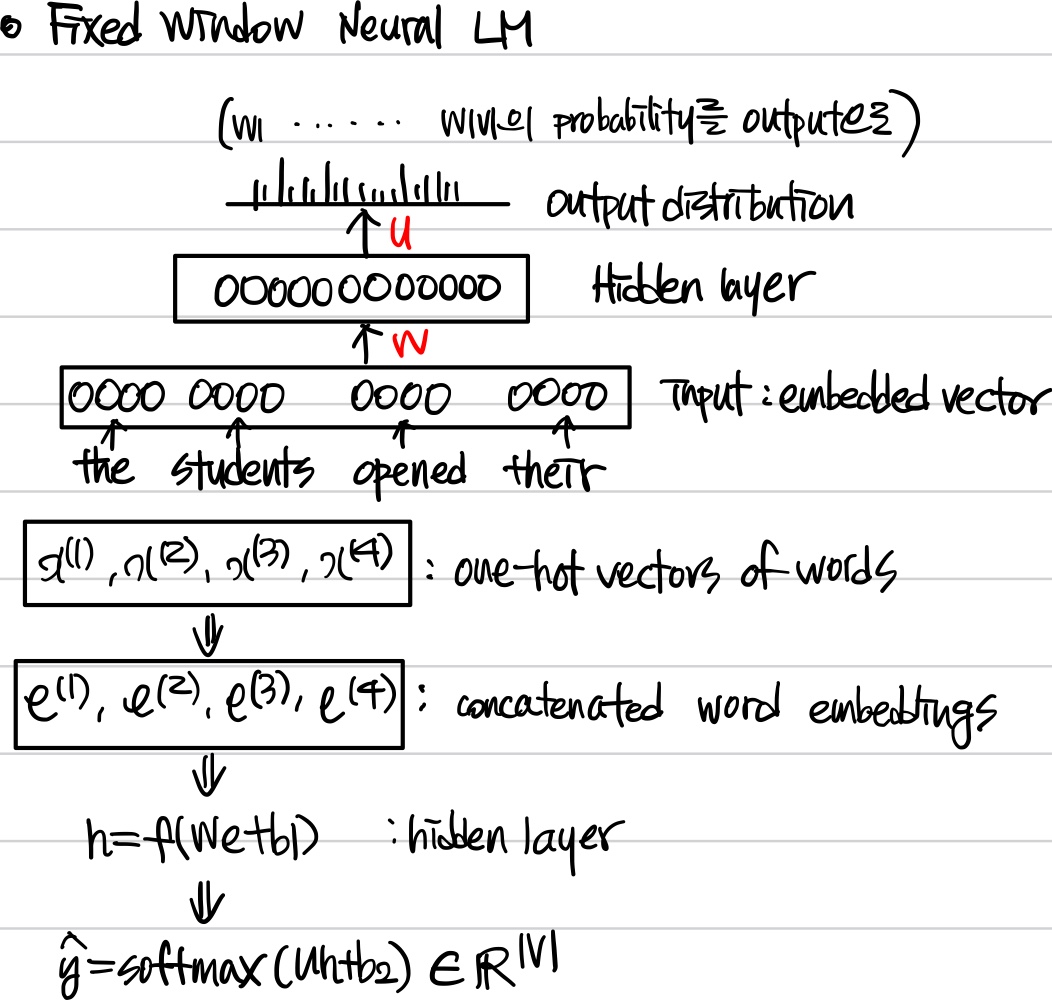 • Fixed Window Neural LM
(w1 ······ w|V|의 probability를 output으로)
output distribution
U
Hidden layer
W
Input : embedded vector
the students opened their
x⁽¹⁾, x⁽²⁾, x⁽³⁾, x⁽⁴⁾ : one-hot vectors of words
⇓
e⁽¹⁾, e⁽²⁾, e⁽³⁾, e⁽⁴⁾ : concatenated word embeddings
⇓
h=f(We+b1) : hidden layer
⇓
ŷ=softmax(Uh+b₂) ∈ ℝ^|V|